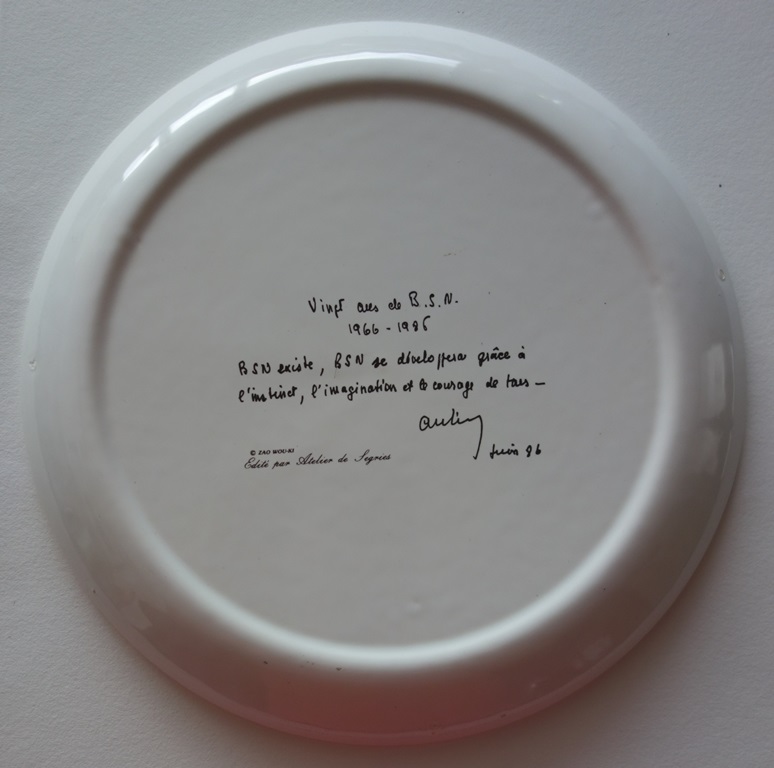 Vingt ans de B.S.N.
1966 - 1986
BSN existe, BSN se développera grâce à
l'instinct, l'imagination et le courage de tous —
© ZAO WOU-KI
Edité par Atelier de Segries
Juin 86